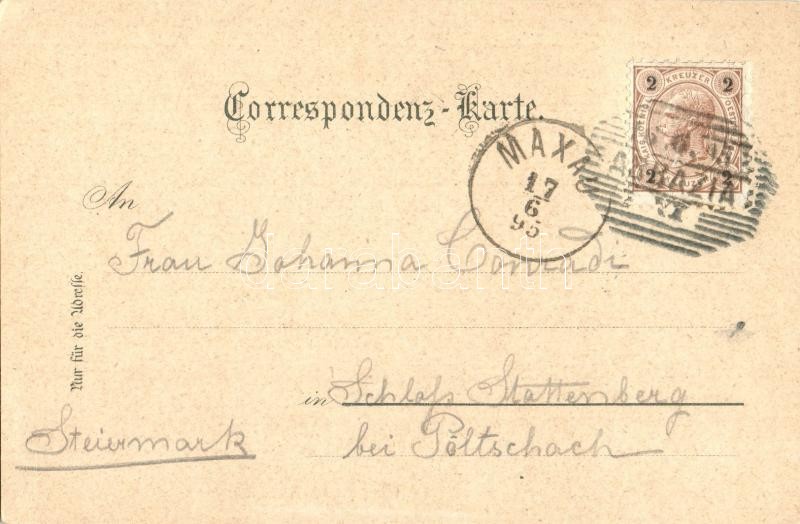 Correspondenz-Karte.
2 KREUZER 2
MAXAU
17
6
95
ABBAZIA
2 2
An
Frau Johanna Conradi
Nur für die Adresse.
in Schloß Stattenberg
Steiermark
bei Pöltschach
darabanth